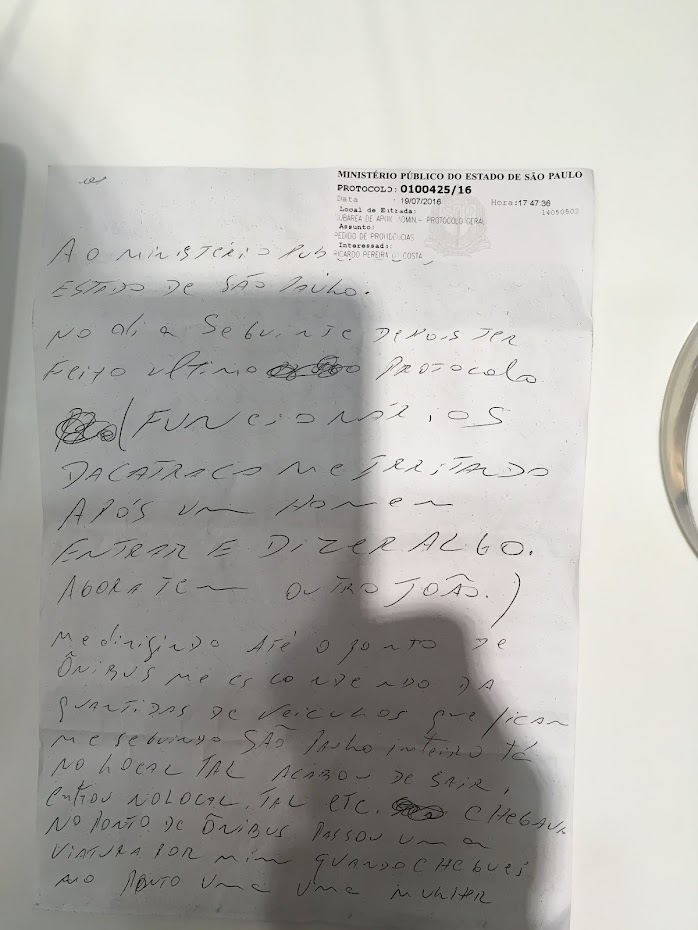 MINISTÉRIO PÚBLICO DO ESTADO DE SÃO PAULO
PROTOCOLO: 0100425/16
Data : 19/07/2016 Hora:17:47:36
14050502
Local de Entrada:
SUBAREA DE APOIO ADMIN.- PROTOCOLO GERAL
Assunto:
PEDIDO DE PROVIDENCIAS
Interessad:
RICARDO PEREIRA COSTA
AO MINISTÉRIO PUB
ESTADO DE SÃO PAULO.
NO dia Seguinte DEPOIS TER
Feito ultimo PROTOCOLO
(FUNCIONÁRIOS
DACATRACA Me IRRITANDO
APÓS um Homem
ENTRAR E DIZER ALGO.
AGORA TEM OUTRO JOÃO.)
Me dirigindo Até o ponto de
ÔNIBUS me escondendo DA
quantidas de veiculos que ficam
me seguindo SÃO PAULO inteiro tá
NO LOCAL TAL ACABOU DE SAIR,
entrou NO LOCAL TAL etc. CHEGAVA
NO PONTO DE ÔNIBUS PASSOU uma
VIATURA POR mim quando CHEGUEI
AO PONTO uma uma MULHER